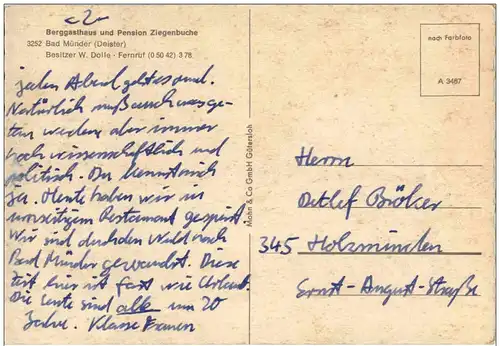 -2-
Berggasthaus und Pension Ziegenbuche
3252 Bad Münder (Deister)
Besitzer W. Dolle · Fernruf (0 50 42) 3 78
nach Farbfoto
A 3487
jeden Abend geht es rund.
Natürlich muß auch was ge-
tan werden aber immer
hoch wissenschaftlich und
politisch. Du kennst mich
ja. Heute haben wir in
umseitigem Restaurant gespeist
Wir sind durch den Wald nach
Bad Münder gewandert. Diese
Zeit hier ist fast wie Urlaub.
Die Leute sind alle um 20
Jahre. Klasse Frauen
Mohn & Co GmbH Gütersloh
Herrn
Detlef Bröker
345 Holzminden
Ernst-August-Straße